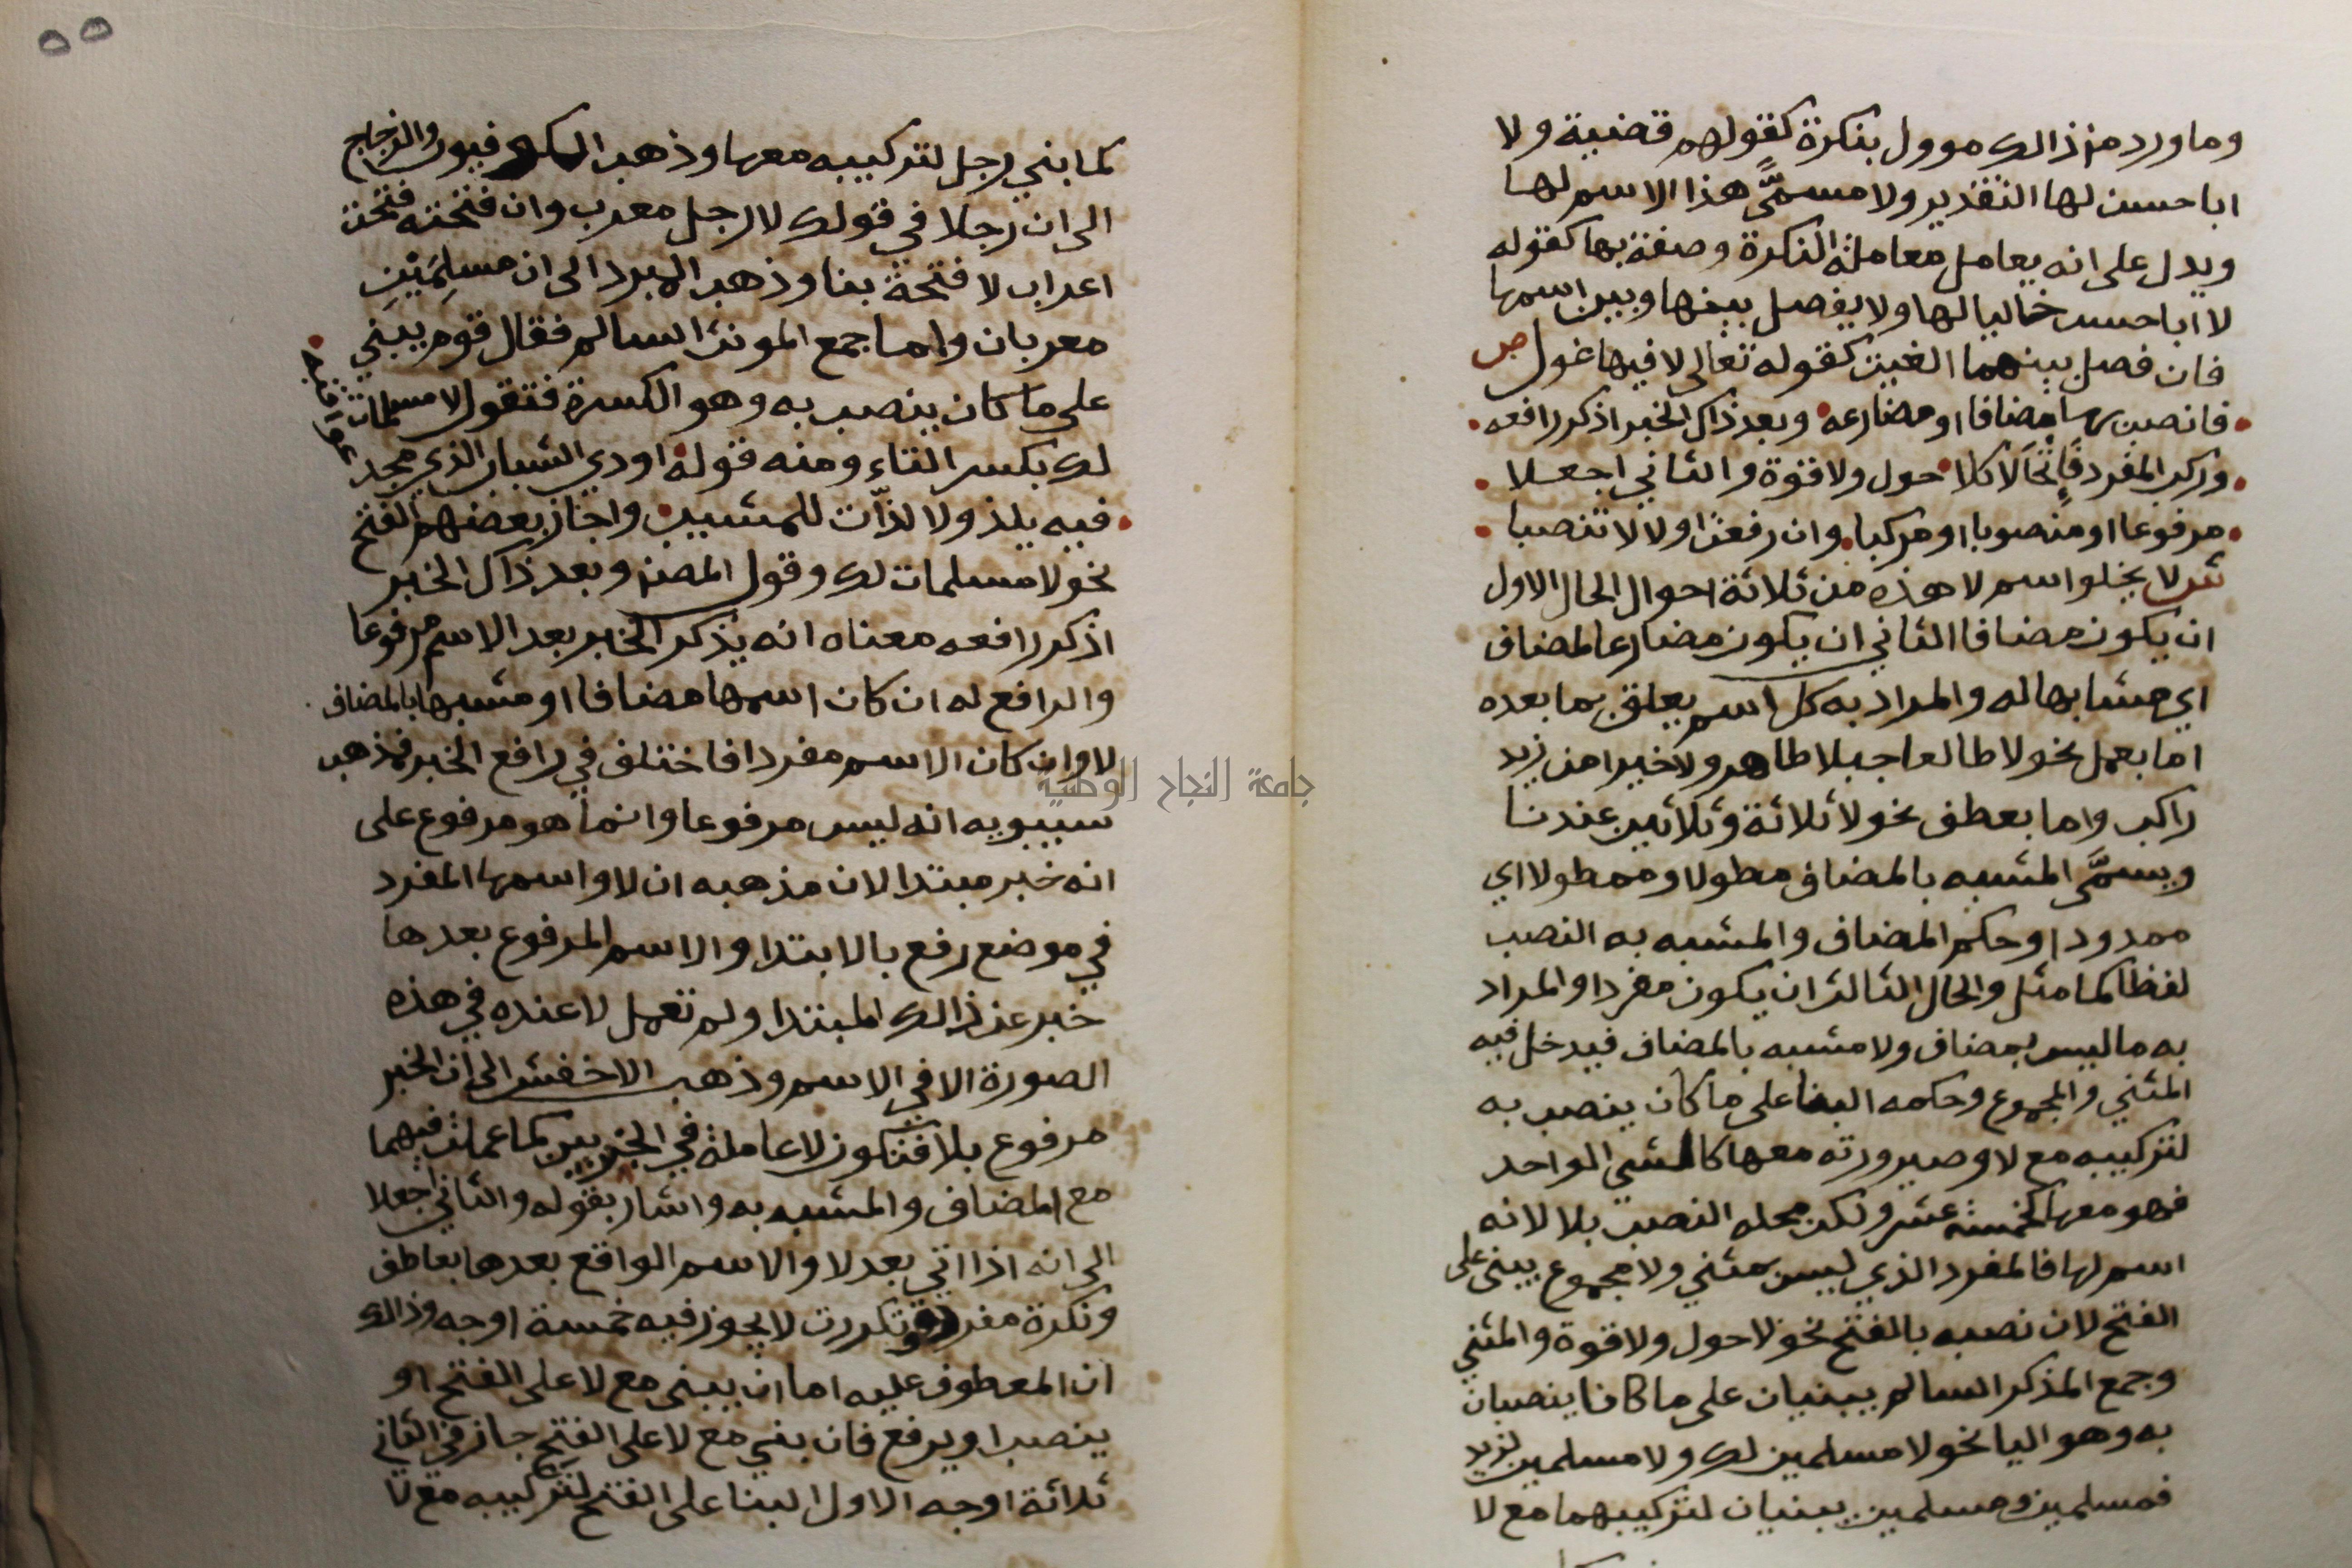 وما ورد من ذالك موول بنكرة كقولهم قضية ولا
ابا حسن لها التقدير ولا مسمَّى هذا الاسم لها
ويدل على انه يعامل معاملة النكرة وصفة بها كقوله
لا ابا حسن خاليا لها ولا يفصل بينها وبين اسمها
فان فصل بينهما الغيت كقوله تعالى لا فيها غول ص
فانصب بها مضافا او مضارعه وبعد ذاك الخبر اذكر رافعه
وركب المفرد فاتحًا كلا حول ولا قوة والثاني اجعلا
مرفوعا او منصوبا او مركبا وان رفعت اولا لا تنصبا
ثم لا يخلو اسم لا هذه من ثلاثة احوال الحال الاول
ان يكون مضافا الثاني ان يكون مضارعا لمضاف
اي مشابها له والمراد به كل اسم يعلق بما بعده
اما بعمل نحو لا طالعا جبلا طاهر ولا خيرا من زيد
راكب واما بعطف نحو لا ثلاثة وثلاثين عندنا
ويسمَّى المشبه بالمضاف مطولا وممطولا اي
ممدودا وحكم المضاف والمشبه به النصب
لفظا كما مثل والحال الثالث ان يكون مفردا والمراد
به ما ليس بمضاف ولا مشبه بالمضاف فيدخل فيه
المثني والمجموع وحكمه البنا على ما كان ينصب به
لتركيبه مع لا وصيرورته معها كالشي الواحد
فهو معها كخمسة عشر ولكن محله النصب بلا لانه
اسم لها فالمفرد الذي ليس بمثني ولا مجموع يبنى على
الفتح لان نصبه بالفتح نحو لا حول ولا قوة والمثني
وجمع المذكر السالم يبنيان على ما كانا ينصبان
به وهو اليا نحو لا مسلمين لك ولا مسلمين لزيد
فمسلمين ومسلمين يبنيان لتركيبهما مع لا
٥٥
كما بني رجل لتركيبه معها وذهب الكوفيون والزجاج
الى ان رجلا في قولك لا رجل معرب وان فتحته فتحة
اعراب لا فتحة بنا وذهب المبرد الى ان مسلِمَيْنِ
معربان واما جمع المونث السالم فقال قوم يبني
على ما كان ينصب به وهو الكسرة فتقول لا مسلمات
لك بكسر التاء ومنه قوله اودي الشباب الذي مجد عواقبه
فيه يلذ ولا لذّات للمشيب واجاز بعضهم الفتح
نحو لا مسلمات لك وقول المصنف وبعد ذاك الخبر
اذكر رافعه معناه انه يذكر الخبر بعد الاسم مرفوعا
والرافع له ان كان اسمها مضافا او مشبها بالمضاف
لا وان كان الاسم مفردا فاختلف في رافع الخبر فذهب
سيبويه انه ليس مرفوعا وانما هو مرفوع على
انه خبر مبتدا لان مذهبه ان لا واسمها المفرد
في موضع رفع بالابتدا والاسم المرفوع بعدها
خبر عن ذالك المبتدا ولم تعمل لا عنده في هذه
الصورة الا في الاسم وذهب الاخفش الى ان الخبر
مرفوع بلا فتكون لا عاملة في الجزيين كما عملت فيهما
مع المضاف والمشبه به واشار بقوله والثاني اجعلا
الى انه اذا اتي بعد لا والاسم الواقع بعدها بعاطف
ونكرة مفردة وتكررت لا يجوز فيه خمسة اوجه وذالك
ان المعطوف عليه اما ان يبنى مع لا على الفتح او
ينصب او يرفع فان بني مع لا على الفتح جاز في الثاني
ثلاثة اوجه الاول البنا على الفتح لتركيبه مع لا
جامعة النجاح الوطنية